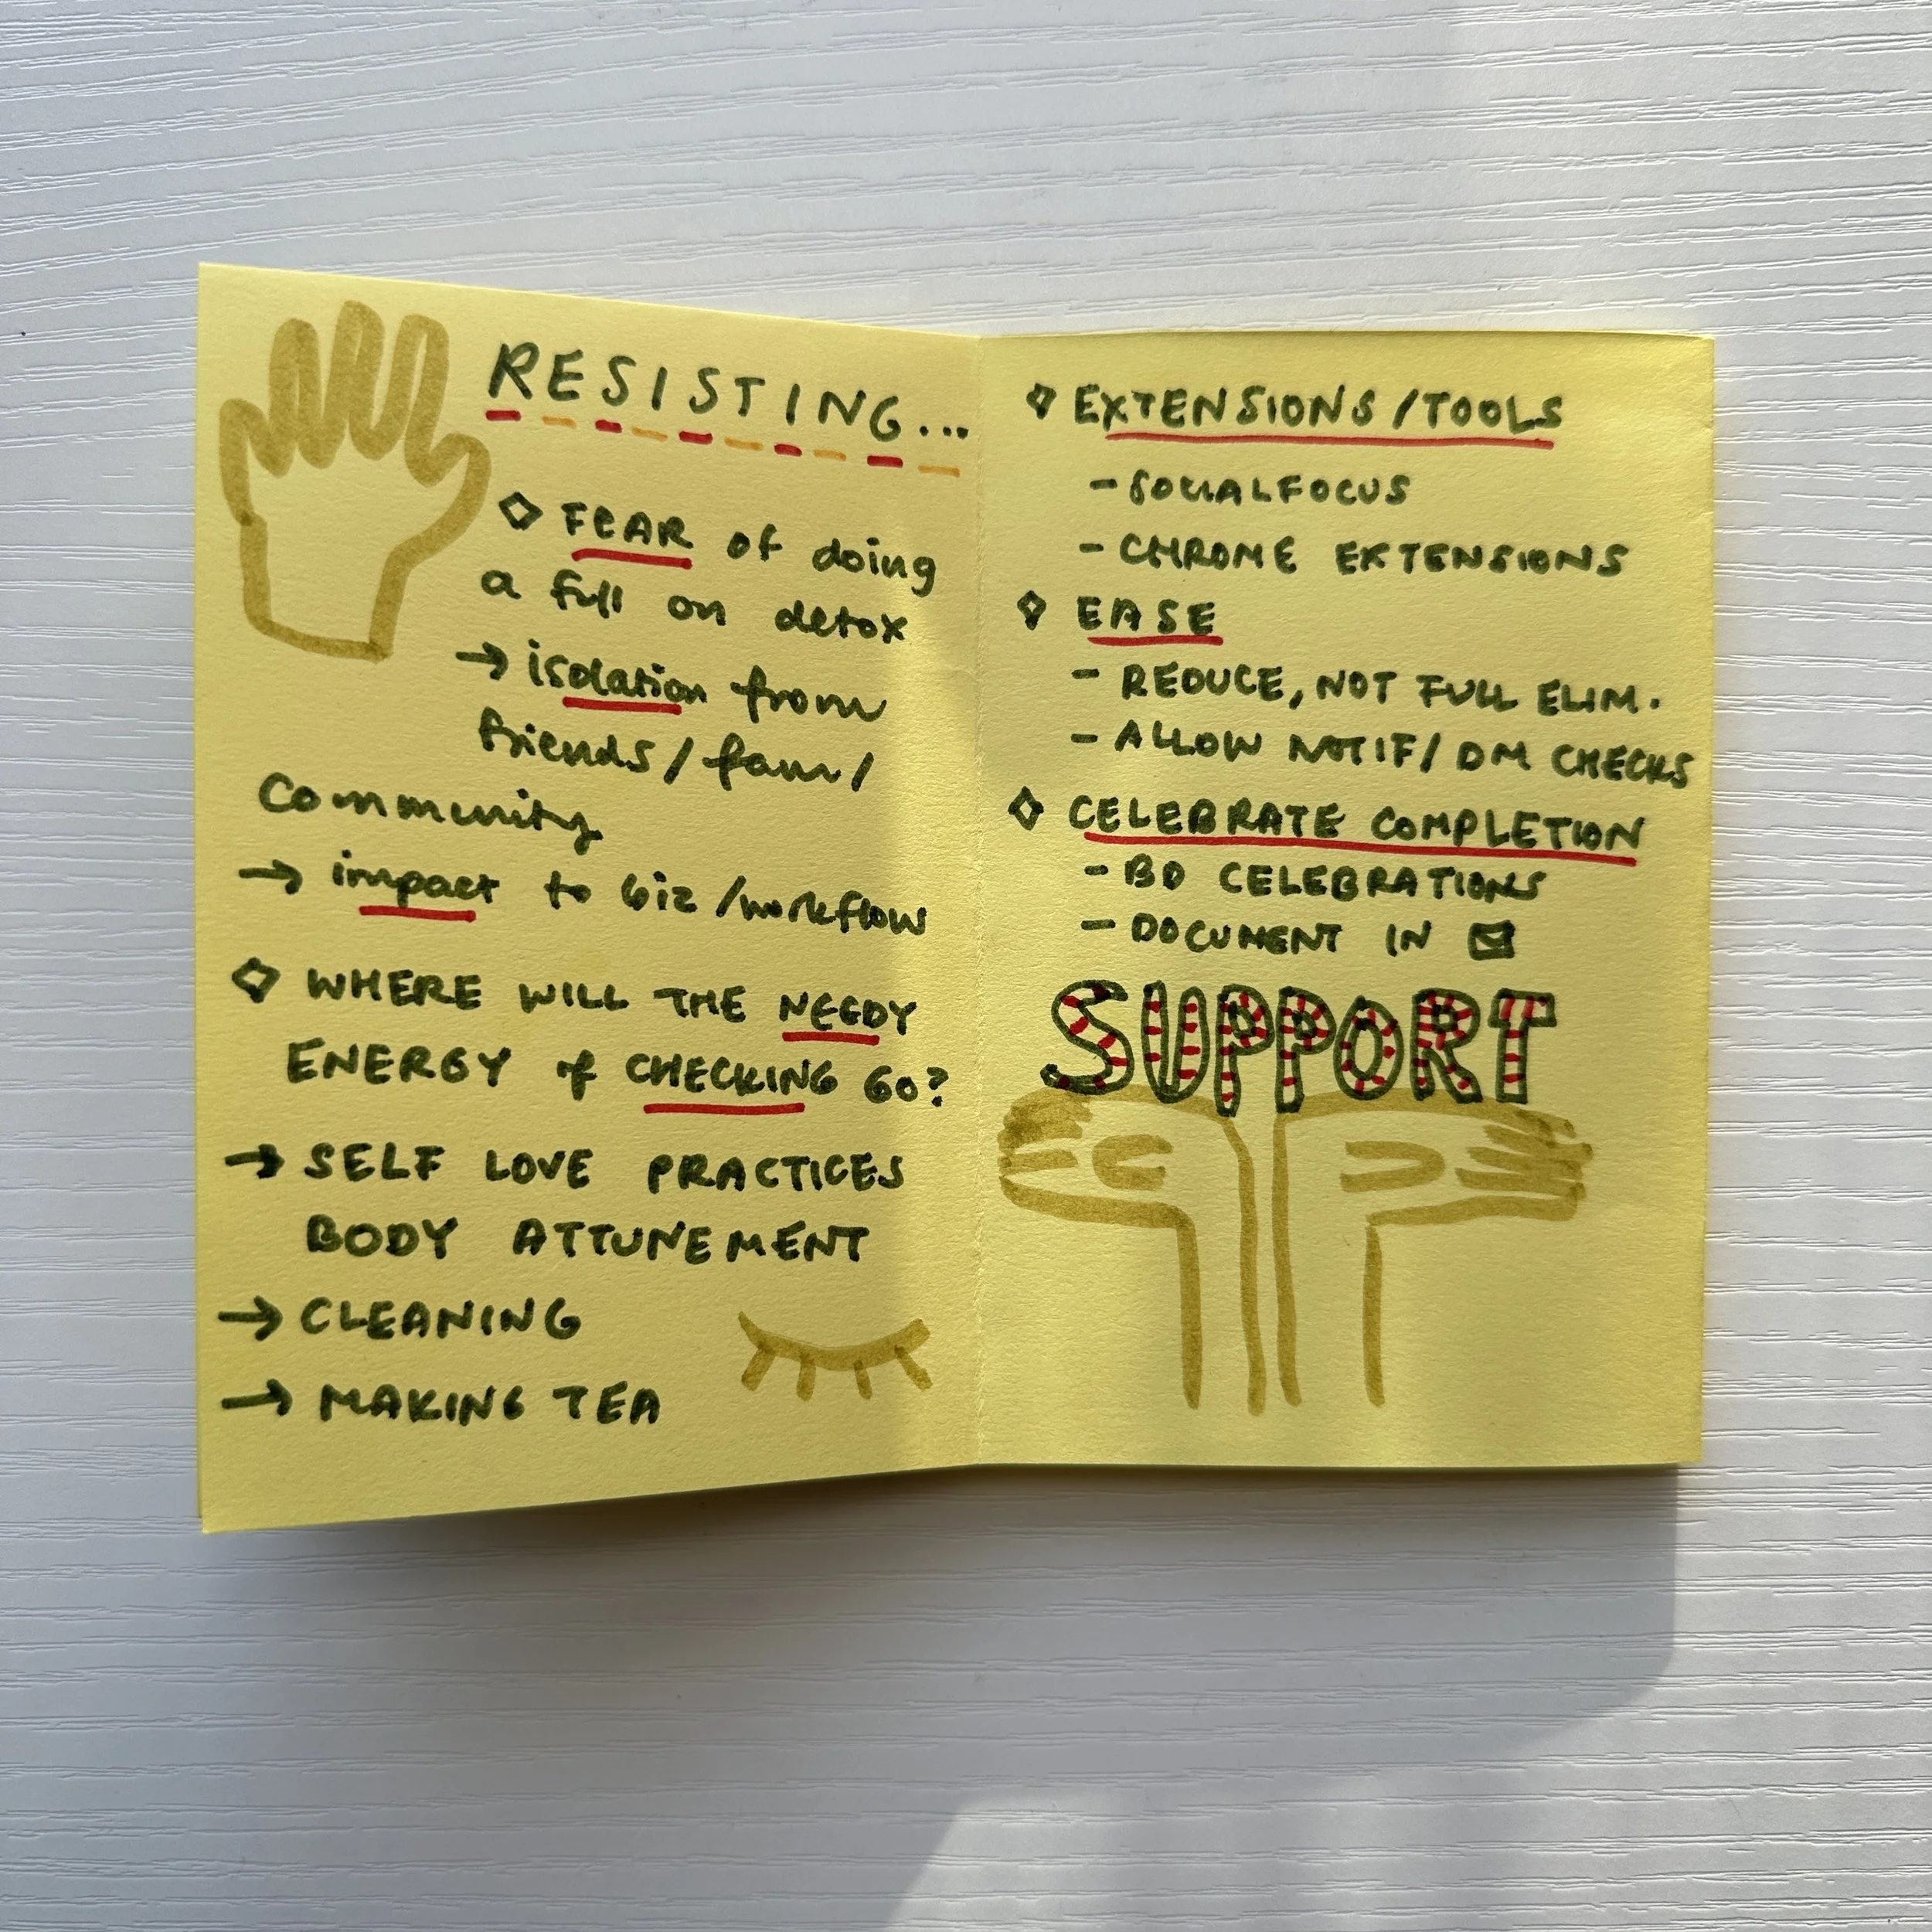 RESISTING...
FEAR of doing
a full on detox
→ isolation from
friends/fam/
Community
→ impact to biz/workflow
WHERE WILL THE NEEDY
ENERGY of CHECKING GO?
→ SELF LOVE PRACTICES
BODY ATTUNEMENT
→ CLEANING
→ MAKING TEA
EXTENSIONS/TOOLS
- SOCIALFOCUS
- CHROME EXTENSIONS
EASE
- REDUCE, NOT FULL ELIM.
- ALLOW NOTIF/DM CHECKS
CELEBRATE COMPLETION
- BD CELEBRATIONS
- DOCUMENT IN
SUPPORT